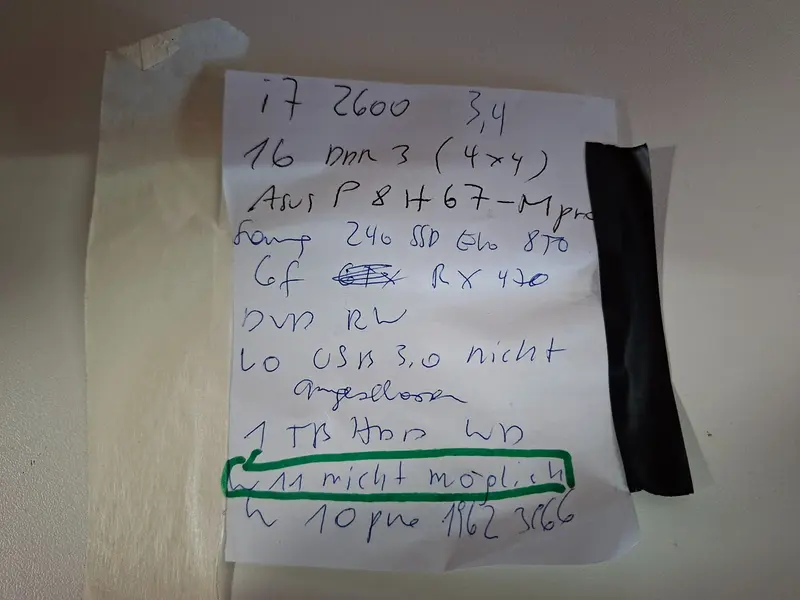 i7 2600 3,4
16 DDR 3 (4x4)
Asus P8H67-M pro
240 SSD Evo
RX 470
DVD RW
USB 3,0 nicht
angeschlossen
1 TB HDD WD
W 11 nicht möglich
W 10 pro 1962